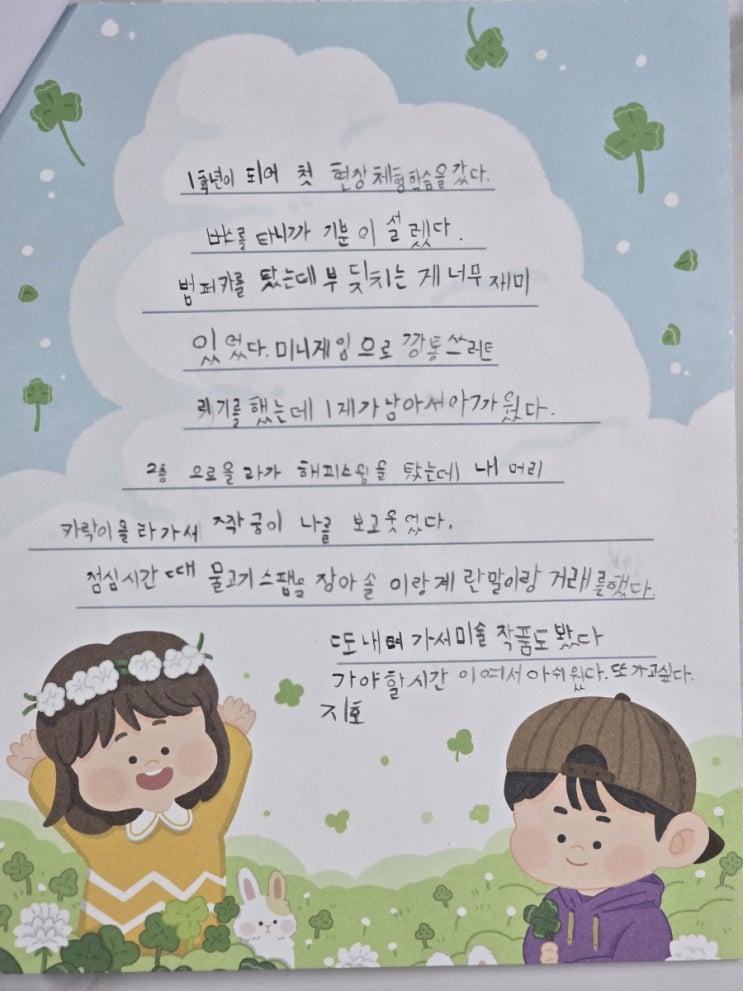 1학년이 되어 첫 현장체험학습을 갔다.
버스를 타니까 기분이 설렜다.
범퍼카를 탔는데 부딪치는 게 너무 재미
있었다. 미니게임으로 깡통쓰러트
리기를 했는데 1개가 남아서 아까웠다.
2층으로 올라가 해피스윙을 탔는데 내 머리
카락이 올라가서 짝궁이 나를 보고 웃었다.
점심시간 때 물고기 스팸을 장아 솔이랑 계란말이랑 거래를 했다.
또 내려가서 미술작품도 봤다
가야 할 시간이여서 아쉬웠다. 또 가고싶다.
지호